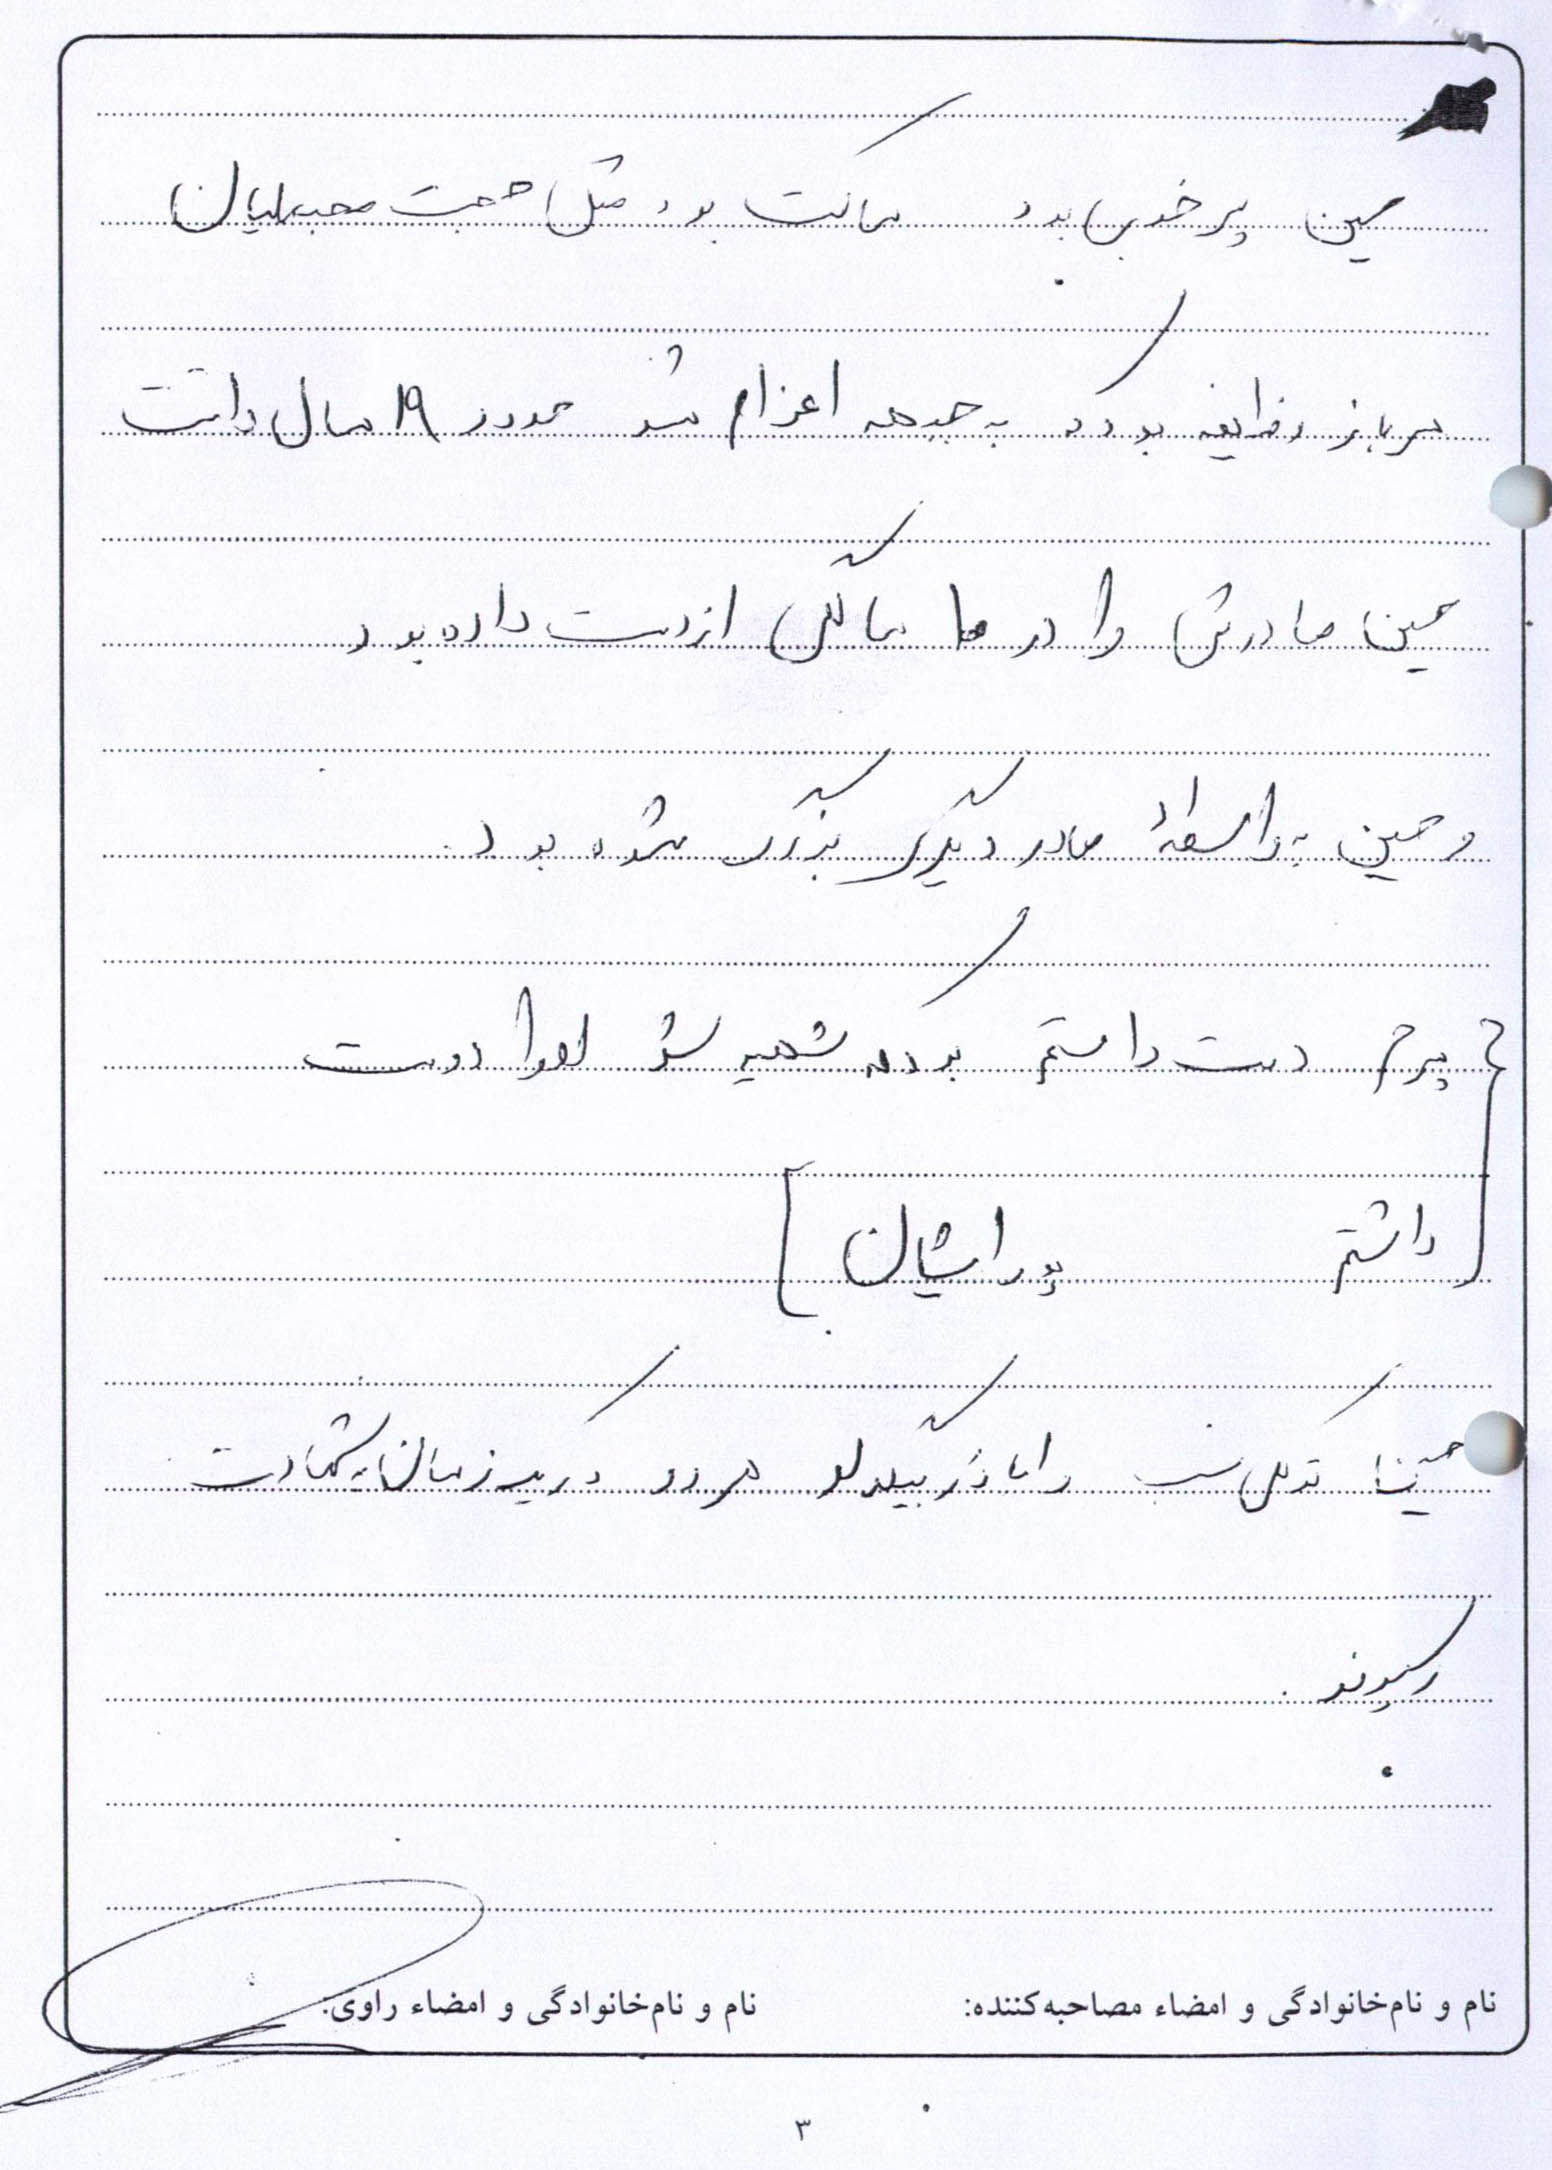 حسین پسر خوبی بود ساکت بود مثل حجت
سرباز وظایفه بود که به جبهه اعزام شد حدود ۱۹ سال داشت
حسین مادرش را در ۱۰ سالگی از دست داده بود
و حسین به واسطهٔ مادر دیگری بزرگ شده بود.
پسرم دوست داشتم بود که شهید شد او را دوست
داشتم پدر ایشان
توکلی نسب و امان اله بیگدلو هر دو در یک زمان به شهادت
رسیدند.
نام و نام‌خانوادگی و امضاء مصاحبه‌کننده: نام و نام‌خانوادگی و امضاء راوی:
۳